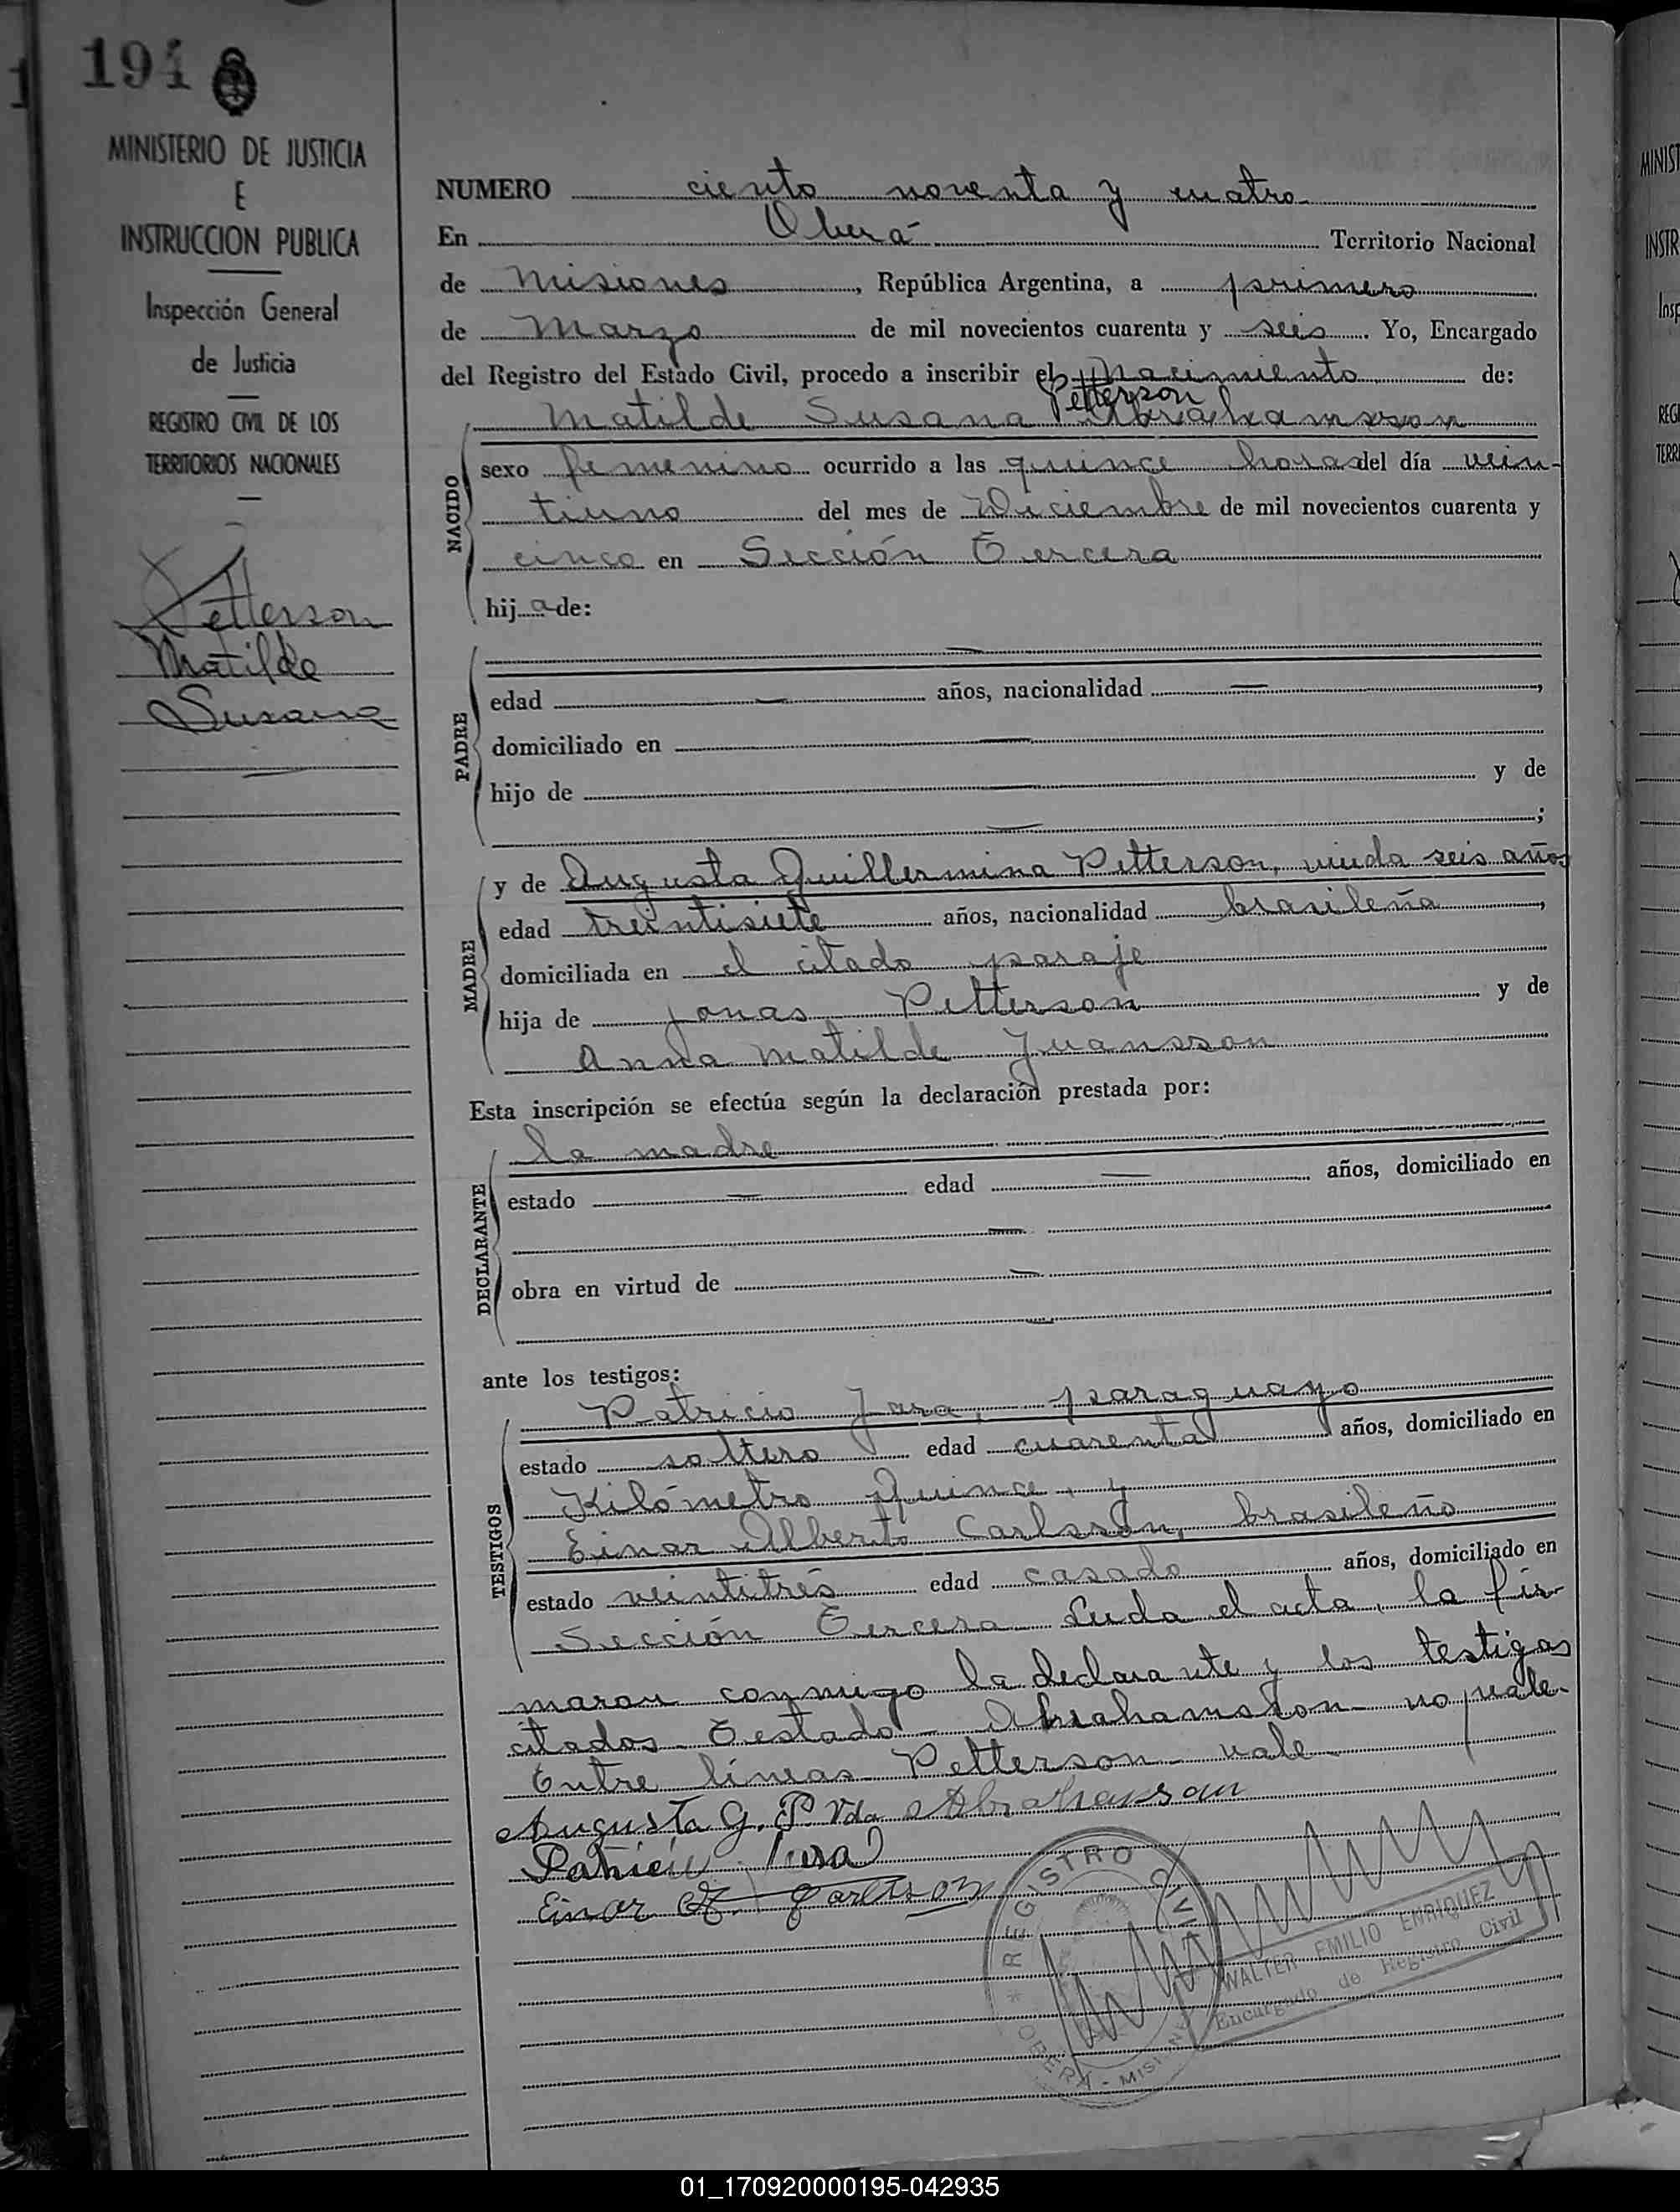 194
MINISTERIO DE JUSTICIA
E
INSTRUCCION PUBLICA
Inspección General
de Justicia
REGISTRO CIVIL DE LOS
TERRITORIOS NACIONALES
Petterson
Matilde
Susana
NUMERO ciento noventa y cuatro
En Oberá Territorio Nacional
de Misiones, República Argentina, a primero
de Marzo de mil novecientos cuarenta y seis. Yo, Encargado
del Registro del Estado Civil, procedo a inscribir el nacimiento de:
Petterson
Matilde Susana Abrahamsson
NACIDO
sexo femenino ocurrido a las quince horas del día vein-
tiuno del mes de Diciembre de mil novecientos cuarenta y
cinco en Sección Tercera
hija de:
PADRE
edad — años, nacionalidad —,
domiciliado en —
hijo de — y de
— ;
MADRE
y de Augusta Guillermina Petterson, viuda seis años
edad treintisiete años, nacionalidad brasileña,
domiciliada en el citado paraje
hija de Jonas Petterson y de
Anna Matilde Juansson
Esta inscripción se efectúa según la declaración prestada por:
DECLARANTE
la madre
estado — edad — años, domiciliado en
—
obra en virtud de —
—
ante los testigos:
TESTIGOS
Patricio Jara, paraguayo
estado soltero edad cuarenta años, domiciliado en
Kilómetro Quince, y
Einar Alberto Carlsson, brasileño
estado veintitrés edad casado años, domiciliado en
Sección Tercera Leida el acta, la fir-
maron conmigo la declarante y los testigos
citados Testado - Abrahamsson - no vale-
Entre líneas Petterson - vale
Augusta G. P. Vda Abrahanson
Patricio Jara
Einar A. Carlsson
REGISTRO CIVIL
OBERA - MISIONES
WALTER EMILIO ENRIQUEZ
Encargado de Registro Civil
MINIST
INSTR
Insp
REGI
TERRI
01_170920000195-042935